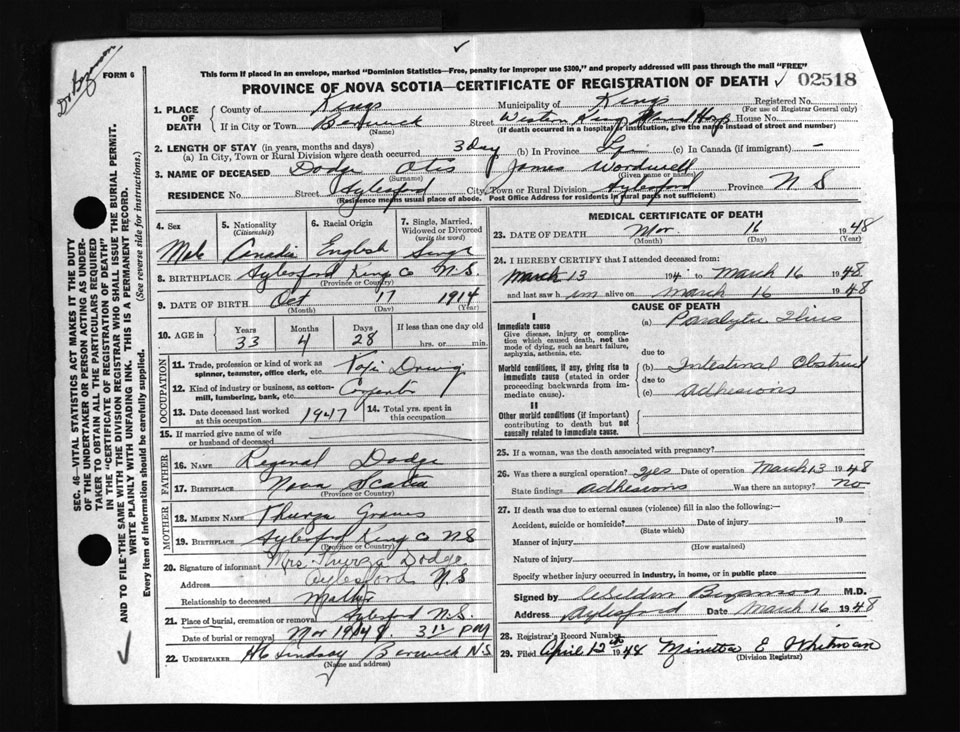 Dr. Bezanson
FORM 6
This form if placed in an envelope, marked "Dominion Statistics—Free, penalty for improper use $300," and properly addressed will pass through the mail "FREE"
PROVINCE OF NOVA SCOTIA—CERTIFICATE OF REGISTRATION OF DEATH ✓ 02518
1. PLACE OF DEATH County of Kings Municipality of Kings Registered No.
(For use of Registrar General only)
If in City or Town Berwick Street Western Kings Hosp House No.
(Name) (If death occurred in a hospital or institution, give the name instead of street and number)
2. LENGTH OF STAY (in years, months and days)
(a) In City, Town or Rural Division where death occurred 3 Day (b) In Province (c) In Canada (if immigrant) -
3. NAME OF DECEASED Dodge Otis James Wordwell
(Surname) (Given name or names)
RESIDENCE No. Street Aylesford City, Town or Rural Division Aylesford Province N S
(Residence means usual place of abode. Post Office Address for residents in rural parts not sufficient)
4. Sex 5. Nationality (Citizenship) 6. Racial Origin 7. Single, Married, Widowed or Divorced (write the word)
Male Canadia English Single
8. BIRTHPLACE Aylesford King Co N.S.
(Province or Country)
9. DATE OF BIRTH Oct 17 1914
(Month) (Day) (Year)
10. AGE in Years Months Days If less than one day old
33 4 28 hrs. or min.
OCCUPATION
11. Trade, profession or kind of work as spinner, teamster, office clerk, etc. Taxi Driving
12. Kind of industry or business, as cotton-mill, lumbering, bank, etc. Carpenter
13. Date deceased last worked at this occupation 1947 14. Total yrs. spent in this occupation
15. If married give name of wife or husband of deceased
FATHER
16. NAME Reginal Dodge
17. BIRTHPLACE Nova Scotia
(Province or Country)
MOTHER
18. MAIDEN NAME Thurza Graves
19. BIRTHPLACE Aylesford King Co NS
(Province or Country)
20. Signature of informant Mrs. Thurza Dodge
Address Aylesford N.S
Relationship to deceased Mother
21. Place of burial, cremation or removal Aylesford N.S.
Date of burial or removal Mar 19
22. UNDERTAKER H C Lindsay Berwick N.S
(Name and address)
MEDICAL CERTIFICATE OF DEATH
23. DATE OF DEATH Mar 16 1948
(Month) (Day) (Year)
24. I HEREBY CERTIFY that I attended deceased from:
March 13 194 to March 16 1948
and last saw him alive on March 16 1948
CAUSE OF DEATH
I
Immediate cause (a) Paralytic Ilius
Give disease, injury or complication which caused death, not the mode of dying, such as heart failure, asphyxia, asthenia, etc.
due to
Morbid conditions, if any, giving rise to immediate cause (stated in order proceeding backwards from immediate cause). (b) Intestinal Obstruc
due to
(c) adhesions
II
Other morbid conditions (if important) contributing to death but not causally related to immediate cause.
25. If a woman, was the death associated with pregnancy?
26. Was there a surgical operation? yes Date of operation March 13 1948
State findings adhesions Was there an autopsy? no
27. If death was due to external causes (violence) fill in also the following:—
Accident, suicide or homicide? Date of injury 19
(State which)
Manner of injury
(How sustained)
Nature of injury
Specify whether injury occurred in industry, in home, or in public place
Signed by Bezanson M.D.
Address Aylesford Date March 16 1948
28. Registrar's Record Number
29. Filed April 12th 1948 Minetta E Whitman
(Division Registrar)
SEC. 46—VITAL STATISTICS ACT MAKES IT THE DUTY
OF THE UNDERTAKER OR PERSON ACTING AS UNDER-
TAKER TO OBTAIN ALL THE PARTICULARS REQUIRED
IN THE "CERTIFICATE OF REGISTRATION OF DEATH"
AND TO FILE THE SAME WITH THE DIVISION REGISTRAR WHO SHALL ISSUE THE BURIAL PERMIT.
WRITE PLAINLY WITH UNFADING INK. THIS IS A PERMANENT RECORD.
Every item of information should be carefully supplied. (See reverse side for instructions.)